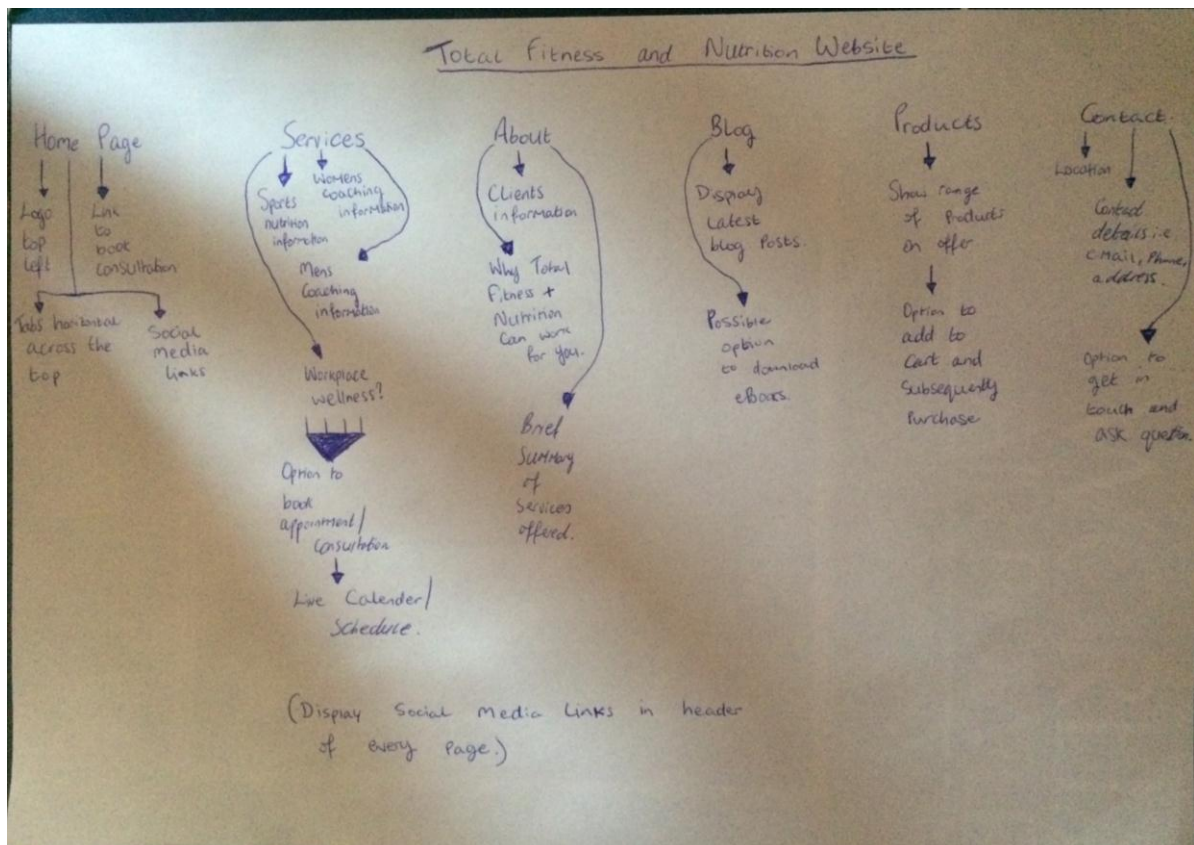 Total Fitness and Nutrition Website
Home Page
Logo
top
left
Link
to
book
consultation
Tabs horizontal
across the
top
Social
media
links
Services
Sports
nutrition
information
Womens
coaching
information
Mens
Coaching
information
Workplace
wellness?
Option to
book
appointment/
consultation
Live Calender/
Schedule.
About
Clients
information
Why Total
Fitness +
Nutrition
Can work
for you.
Brief
Summary
of
Services
offered.
Blog
Display
latest
blog Posts.
Possible
option
to download
eBooks.
Products
Show range
of Products
on offer
Option to
add to
Cart and
Subsequently
Purchase
Contact.
Location
Contact
details i.e.
email, Phone,
address.
Option to
get in
touch and
ask question.
(Display Social Media Links in header
of every Page.)